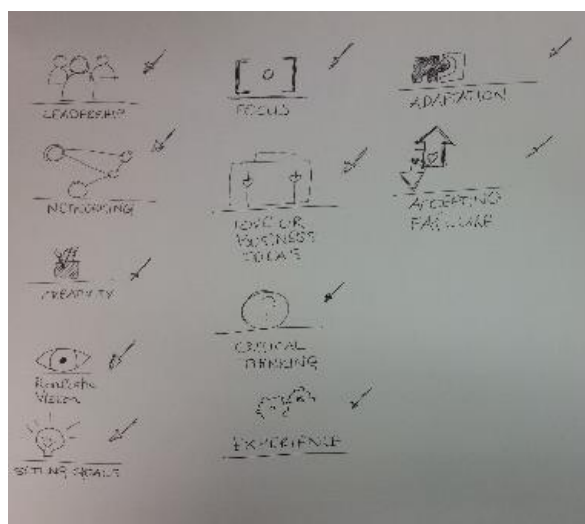 LEADERSHIP
NETWORKING
CREATIVITY
Vision
SETTING GOALS
FOCUS
LOVE OR
BUSINESS
IDEAS
CRITICAL
THINKING
EXPERIENCE
ADAPTATION
ACCEPTING
FAILURE